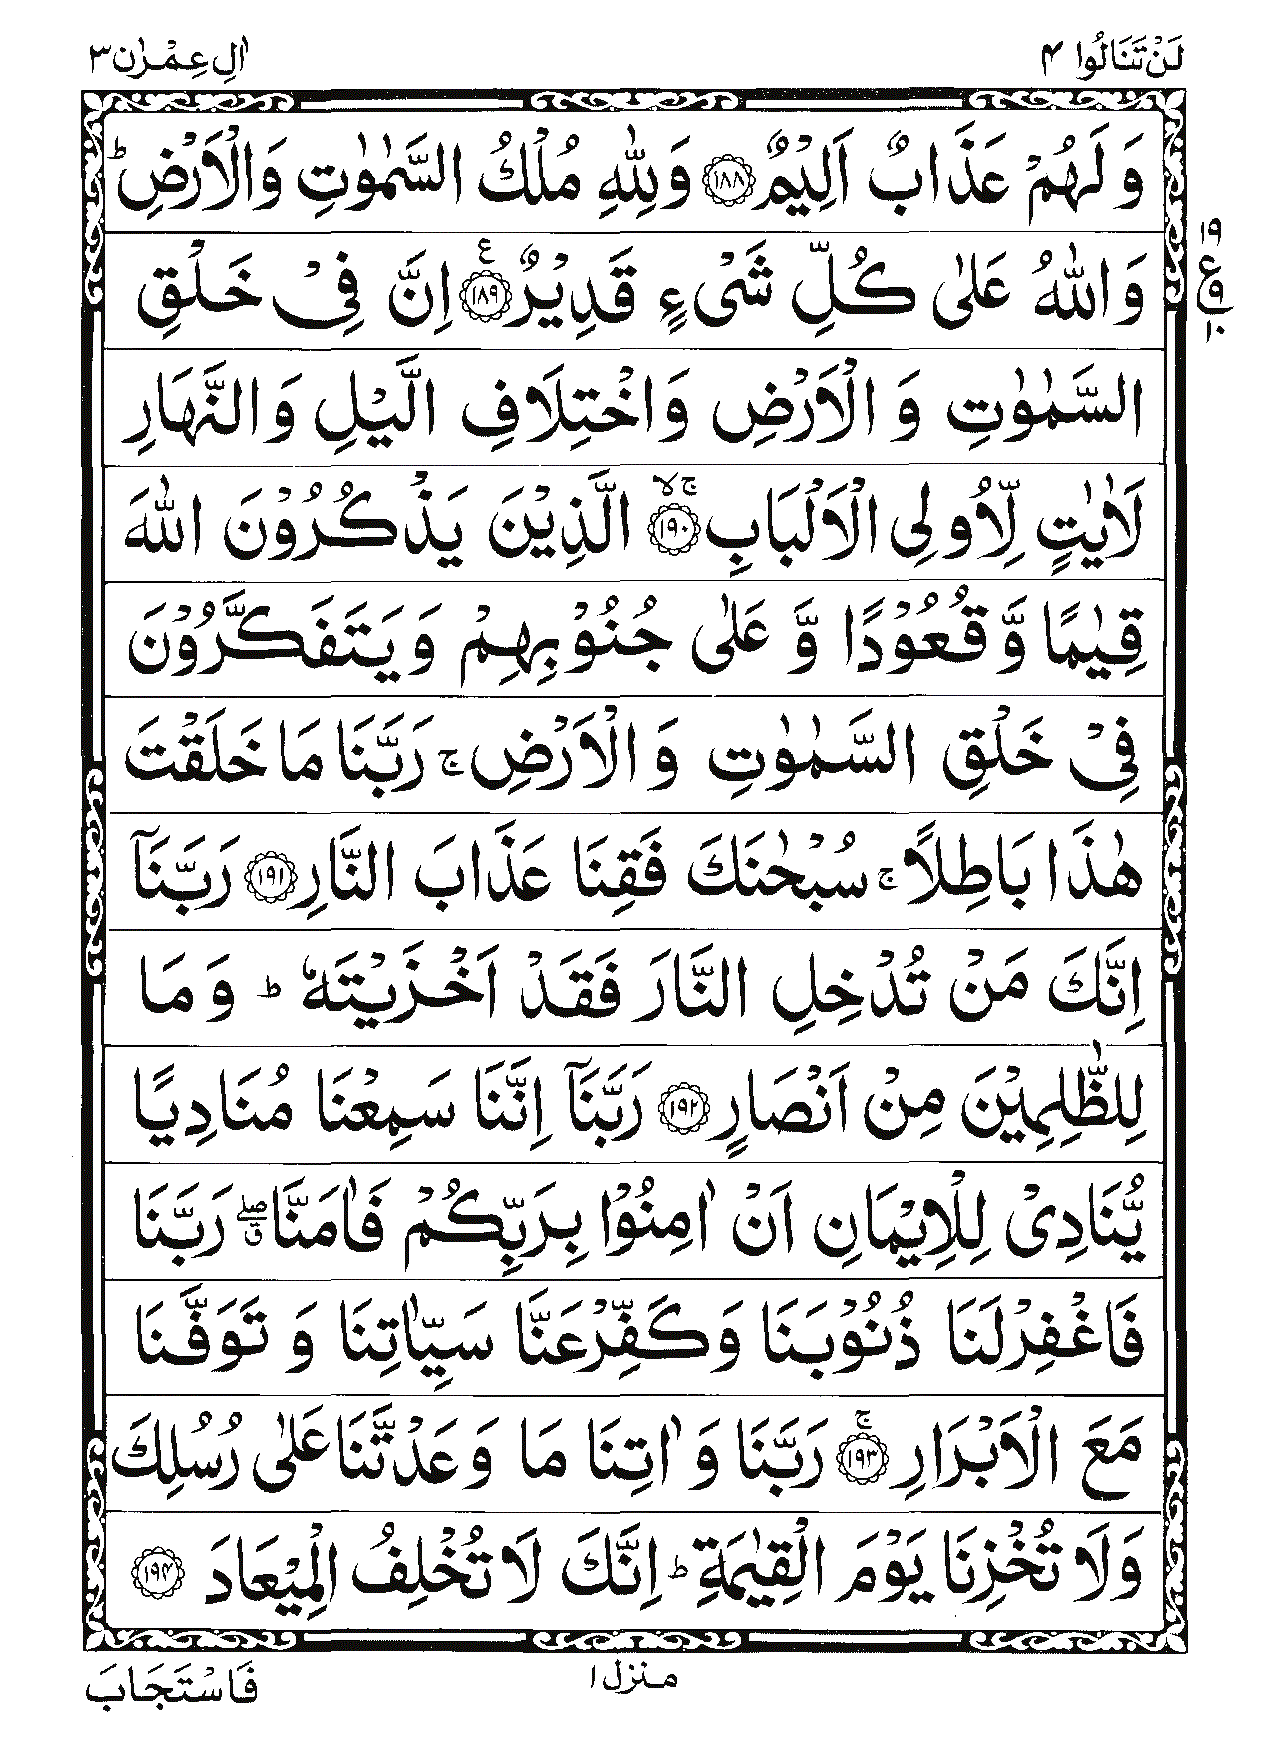 لَنْ تَنَالُوا ۴
اٰلِ عِمْرٰن ۳
وَ لَهُمْ عَذَابٌ اَلِيْمٌ ۝۱۸۸ وَلِلّٰهِ مُلْكُ السَّمٰوٰتِ وَالْاَرْضِ ؕ
وَ اللّٰهُ عَلٰى كُلِّ شَىْءٍ قَدِيْرٌ ۝۱۸۹ ع اِنَّ فِىْ خَلْقِ
السَّمٰوٰتِ وَ الْاَرْضِ وَاخْتِلَافِ الَّيْلِ وَ النَّهَارِ
لَاٰيٰتٍ لِّاُولِى الْاَلْبَابِ ۝۱۹۰ ۚۙ الَّذِيْنَ يَذْكُرُوْنَ اللّٰهَ
قِيٰمًا وَّ قُعُوْدًا وَّ عَلٰى جُنُوْبِهِمْ وَ يَتَفَكَّرُوْنَ
فِىْ خَلْقِ السَّمٰوٰتِ وَ الْاَرْضِ ۚ رَبَّنَا مَا خَلَقْتَ
هٰذَا بَاطِلًا ۚ سُبْحٰنَكَ فَقِنَا عَذَابَ النَّارِ ۝۱۹۱ رَبَّنَاۤ
اِنَّكَ مَنْ تُدْخِلِ النَّارَ فَقَدْ اَخْزَيْتَهٗ ؕ وَ مَا
لِلظّٰلِمِيْنَ مِنْ اَنْصَارٍ ۝۱۹۲ رَبَّنَاۤ اِنَّنَا سَمِعْنَا مُنَادِيًا
يُّنَادِىْ لِلْاِيْمَانِ اَنْ اٰمِنُوْا بِرَبِّكُمْ فَاٰمَنَّا ۖق رَبَّنَا
فَاغْفِرْ لَنَا ذُنُوْبَنَا وَ كَفِّرْ عَنَّا سَيِّاٰتِنَا وَ تَوَفَّنَا
مَعَ الْاَبْرَارِ ۝۱۹۳ ۚ رَبَّنَا وَ اٰتِنَا مَا وَعَدْتَّنَا عَلٰى رُسُلِكَ
وَلَا تُخْزِنَا يَوْمَ الْقِيٰمَةِ ؕ اِنَّكَ لَا تُخْلِفُ الْمِيْعَادَ ۝۱۹۴
۱۹
ع
۹
۱۰
منزل ۱
فَاسْتَجَابَ